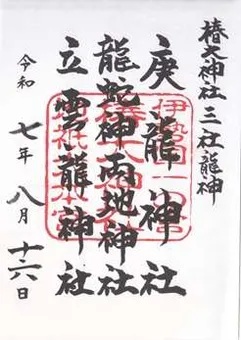 椿大神社三社龍神
庚龍神社
龍蛇神両地神社
立雲龍神社
令和七年八月十六日
伊勢国一の宮